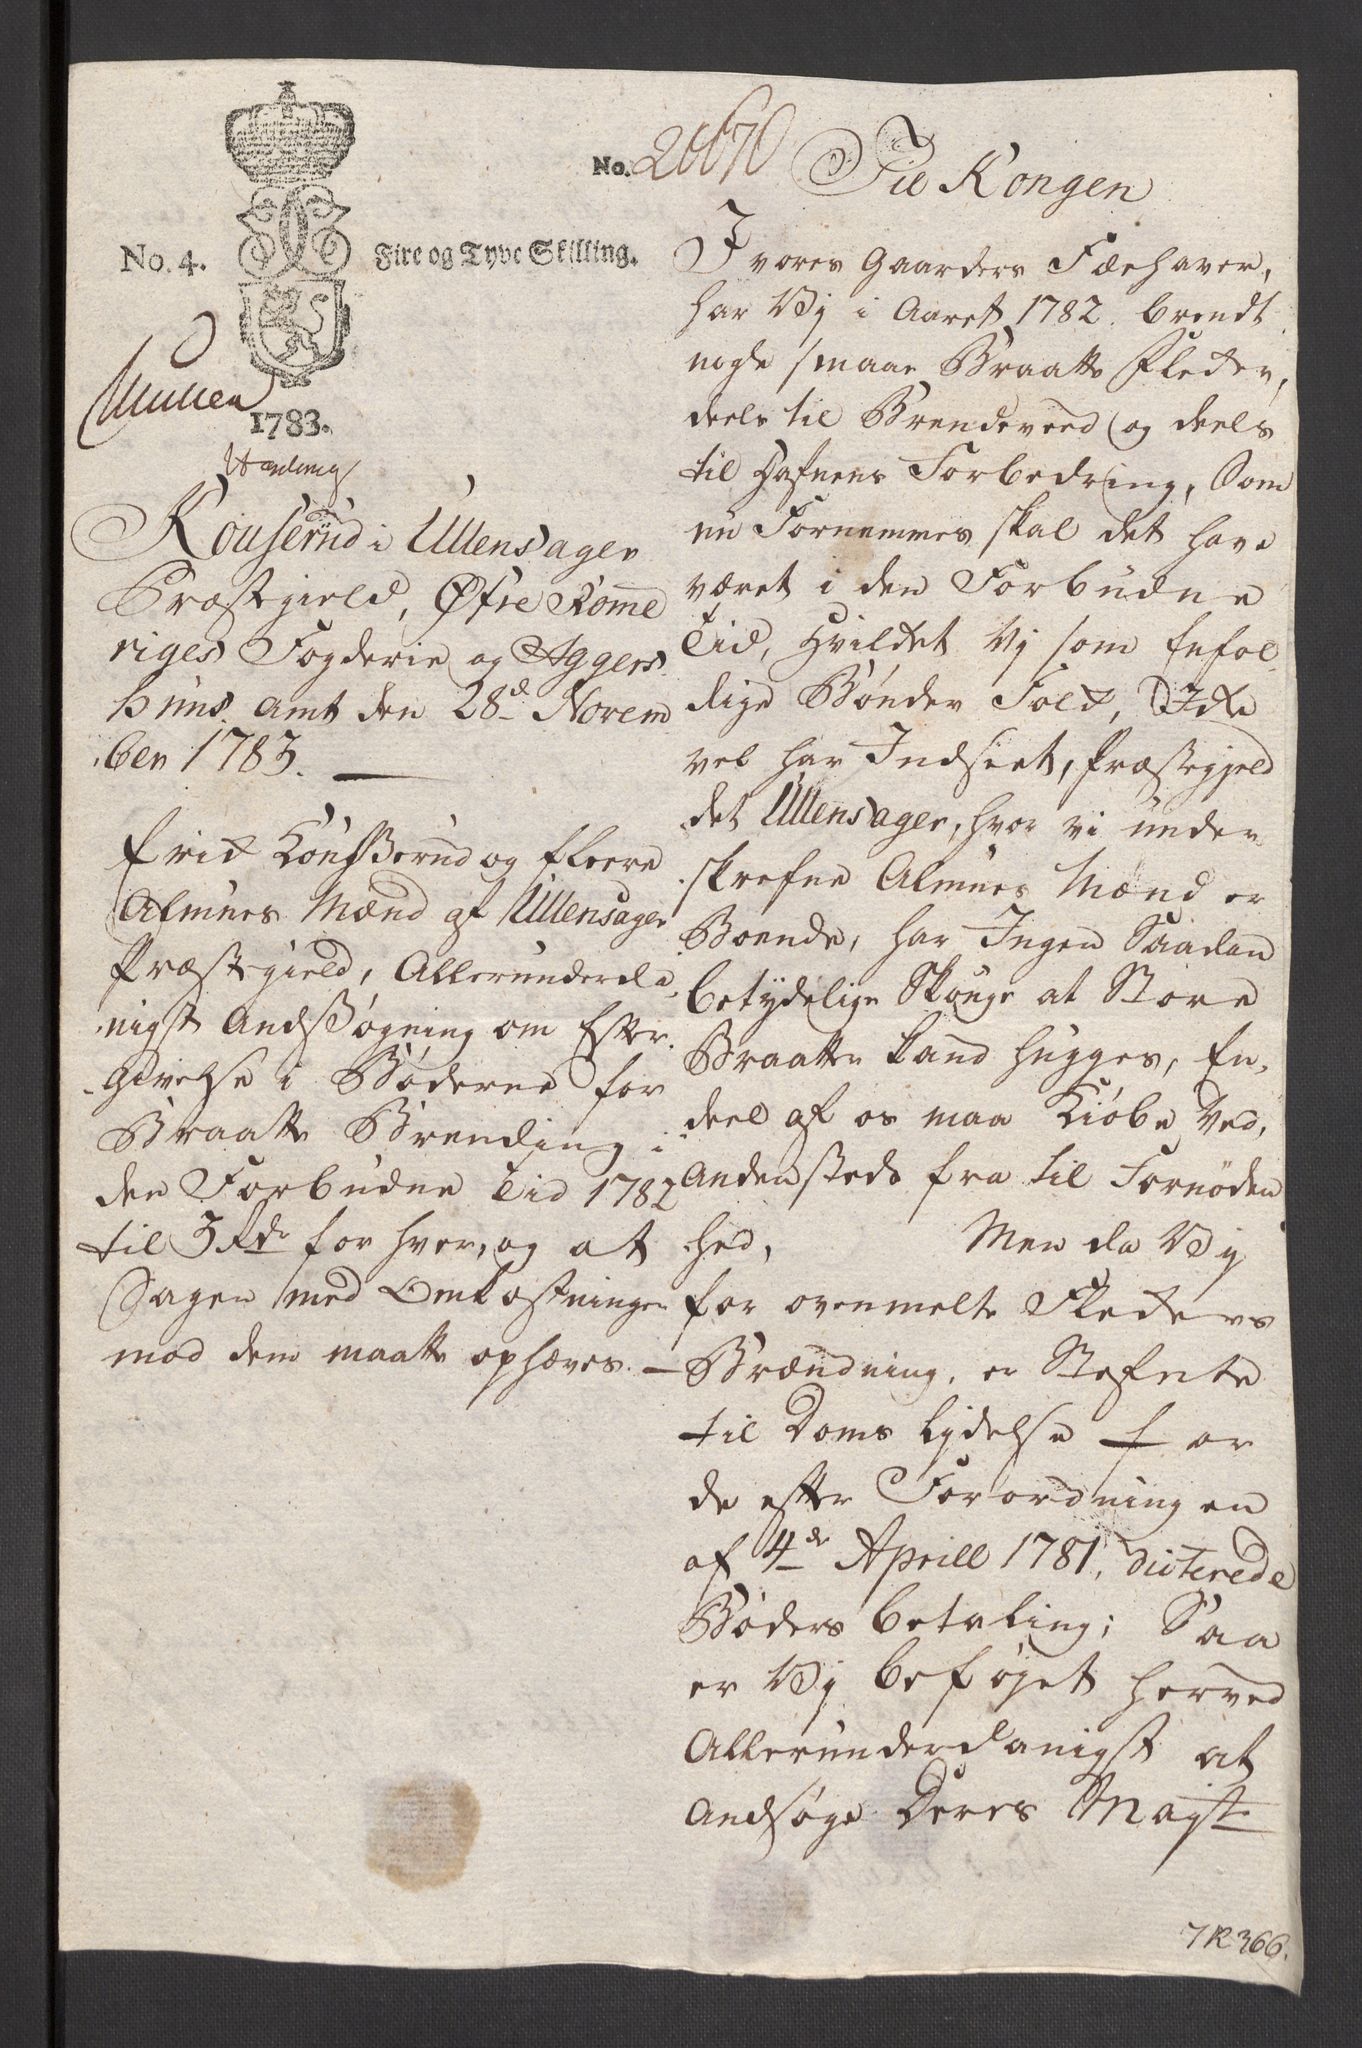 No. 2670
No. 4. Fire og Tyve Skilling.
1783.
Kouserud i Ullensager
Præstegield, Øfre Rome
riges Fogderie og Aggers
huus Amt den 28de Novem
ber 1783.
Erik Kousserud og fleere
Almues Mænd af Ullensager
Præstegield, Allerunderda
nigst Andsøgning om Efter
givelse i Bøderne for
Braatte Brending i
den Forbudne Tid 1782
til 3 Rdr for hver, og at
Sagen med Omkostninger
mod dem maatte ophæves.
Til Kongen
I vores Gaarders Fæehaver,
har Vij i Aaret 1782. brendt
nogle smaae Braatte Flekker,
deels til Brendeveed og deels
til Hafnens Forbedring, Som
nu Fornemmes skal det have
været i den Forbudne
Tid, Hvilket Vj som Enfol
dige Bønder Folk, Ikke
vel har Indseet, Præstegjeld
det Ullensager, hvor vi under
skrefne Almues Mænd er
Boende, har Ingen Saadan
betydelige Skouge at Store
Braatter kand hugges, En
deel af os maa Kiøbe Ved,
Andensteds fra til Fornøden
hed, Men da Vij
for ovenmelte Flekkers
Brændning, er Stefnte
til Doms Lydelse for
de efter Forordningen
af 4de Aprill 1781, dicterede
Bøders betaling; Saa
er Vij beføyet herved
Allerunderdanigst at
Andsøge Deres Mayst
7R366.